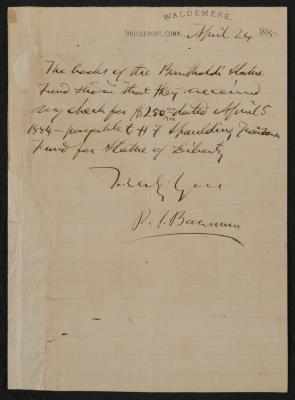 WALDEMERE.
BRIDGEPORT, CONN., April 24 1885
The books of the Bartholdi Statue
Fund show that they received
my check for $250 00/100 dated April 5
1884 - payable to H F Spaulding Treasurer
Fund for Statue of Liberty
Truly Yours
P. T. Barnum